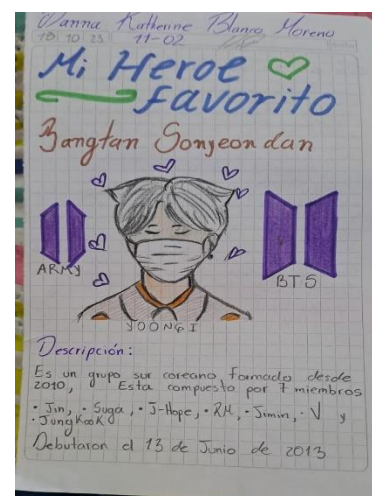 Danna Katherine Blanco Moreno
18 10 23 11-02
Mi Heroe
favorito
Bangtan Sonyeondan
ARMY
BTS
YOONGI
Descripción:
Es un grupo sur coreano formado desde
2010, Esta compuesto por 7 miembros
• Jin, • Suga, • J-Hope, • RM, • Jimin, • V y
• JungKooK
Debutaron el 13 de Junio de 2013